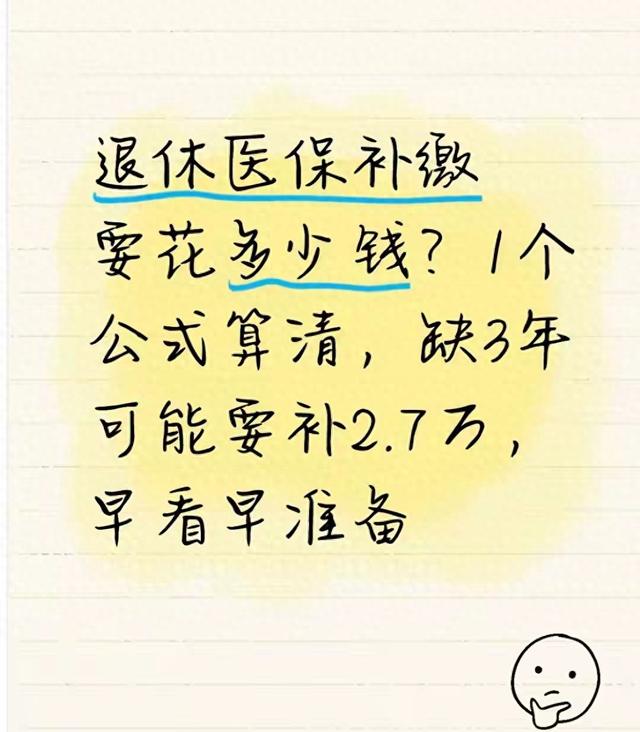 退休医保补缴
要花多少钱？1个
公式算清，缺3年
可能要补2.7万，
早看早准备